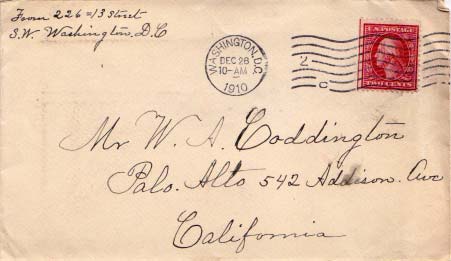 From 226 = 13 Street
S.W. Washington, D.C
WASHINGTON, D.C.
DEC 28
10-AM
1910
2
C
U.S. POSTAGE
TWO CENTS
Mr W. A. Coddington
Palo. Alto 542 Addison. Ave
California